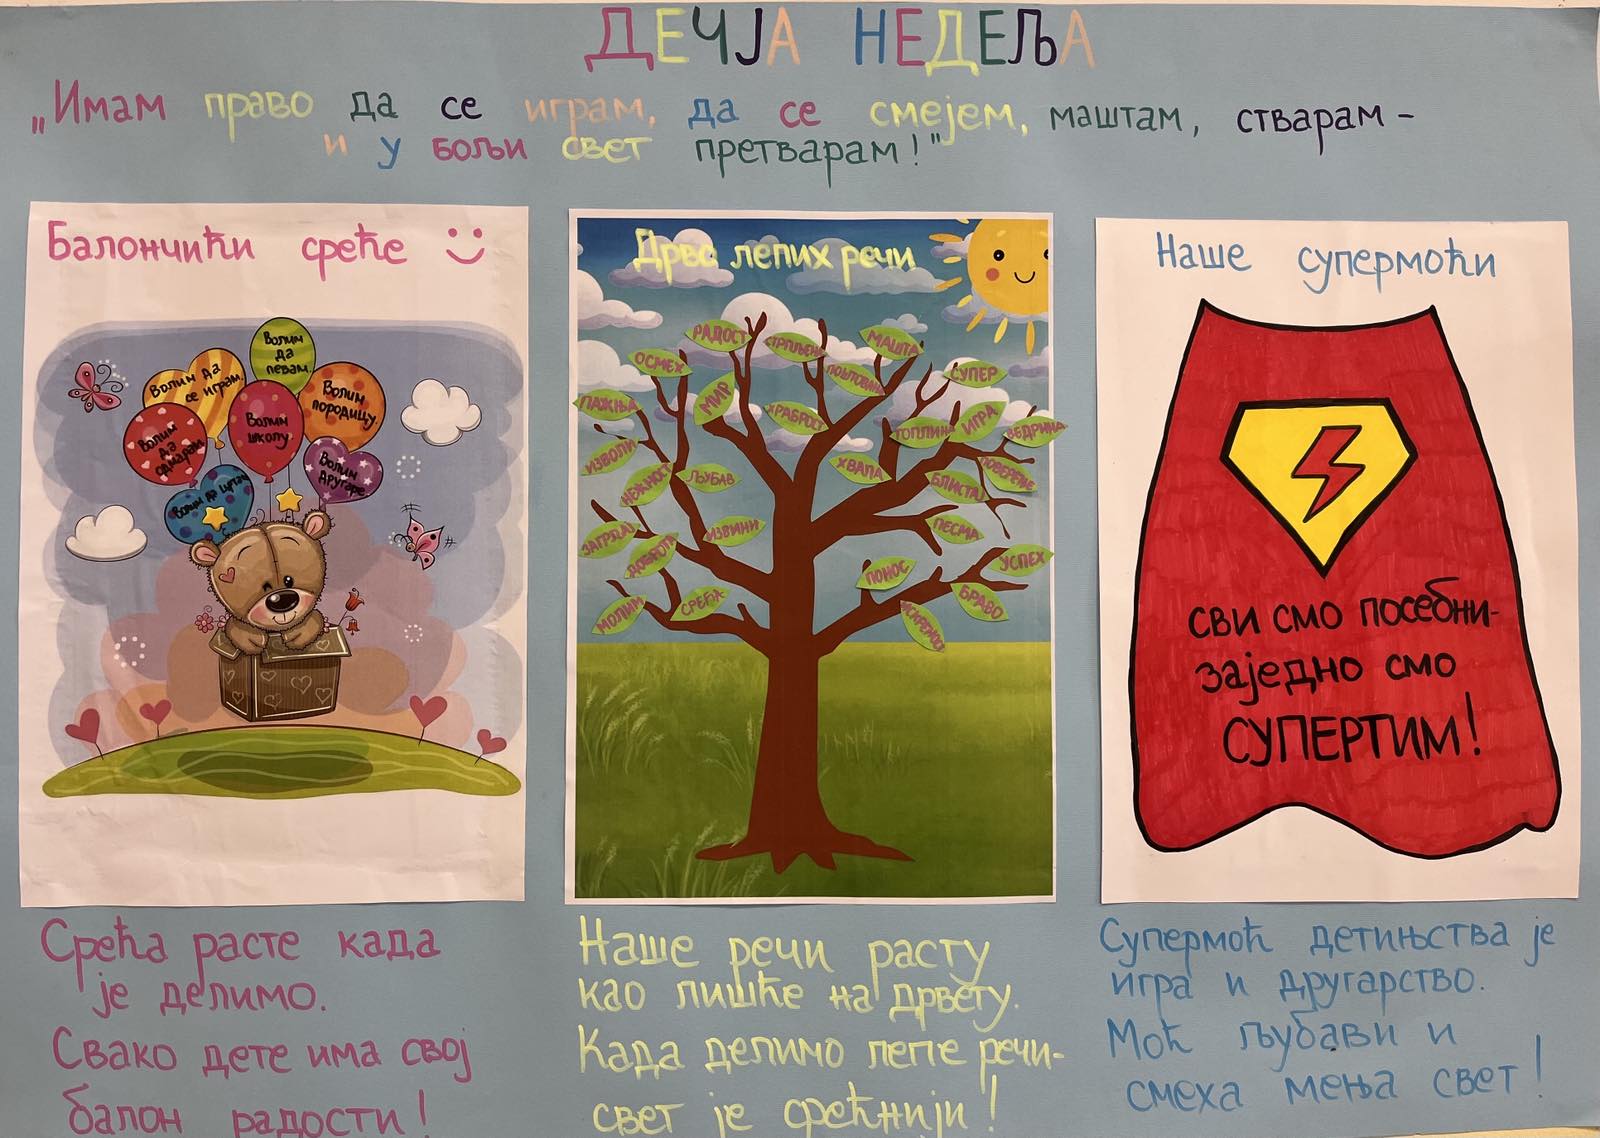 ДЕЧЈА НЕДЕЉА
„Имам право да се играм, да се смејем, маштам, стварам -
и у бољи свет претварам!"
Балончићи среће
Волим
да
певам.
Волим да
се играм.
Волим
породицу.
Волим
школу.
Волим
да
одмарам.
Волим
другаре.
Волим да цртам
Срећа расте када
је делимо.
Свако дете има свој
балон радости!
Дрво лепих речи
РАДОСТ
СТРПЉЕЊЕ
МАШТА
ОСМЕХ
ПОШТОВАЊЕ
СУПЕР
ПАЖЊА
МИР
ХРАБРОСТ
ТОПЛИНА
ИГРА
ВЕДРИНА
ИЗВОЛИ
НЕЖНОСТ
ЉУБАВ
ХВАЛА
БЛИСТАЈ
ПОВЕРЕЊЕ
ЗАГРЉАЈ
ДОБРОТА
ИЗВИНИ
ПЕСМА
УСПЕХ
ПОНОС
МОЛИМ
СРЕЋА
БРАВО
ИСКРЕНОСТ
Наше речи расту
као лишће на дрвету.
Када делимо лепе речи-
свет је срећнији!
Наше супермоћи
СВИ СМО ПОСЕБНИ-
заједно смо
СУПЕРТИМ!
Супермоћ детињства је
игра и другарство.
Моћ љубави и
смеха мења свет!